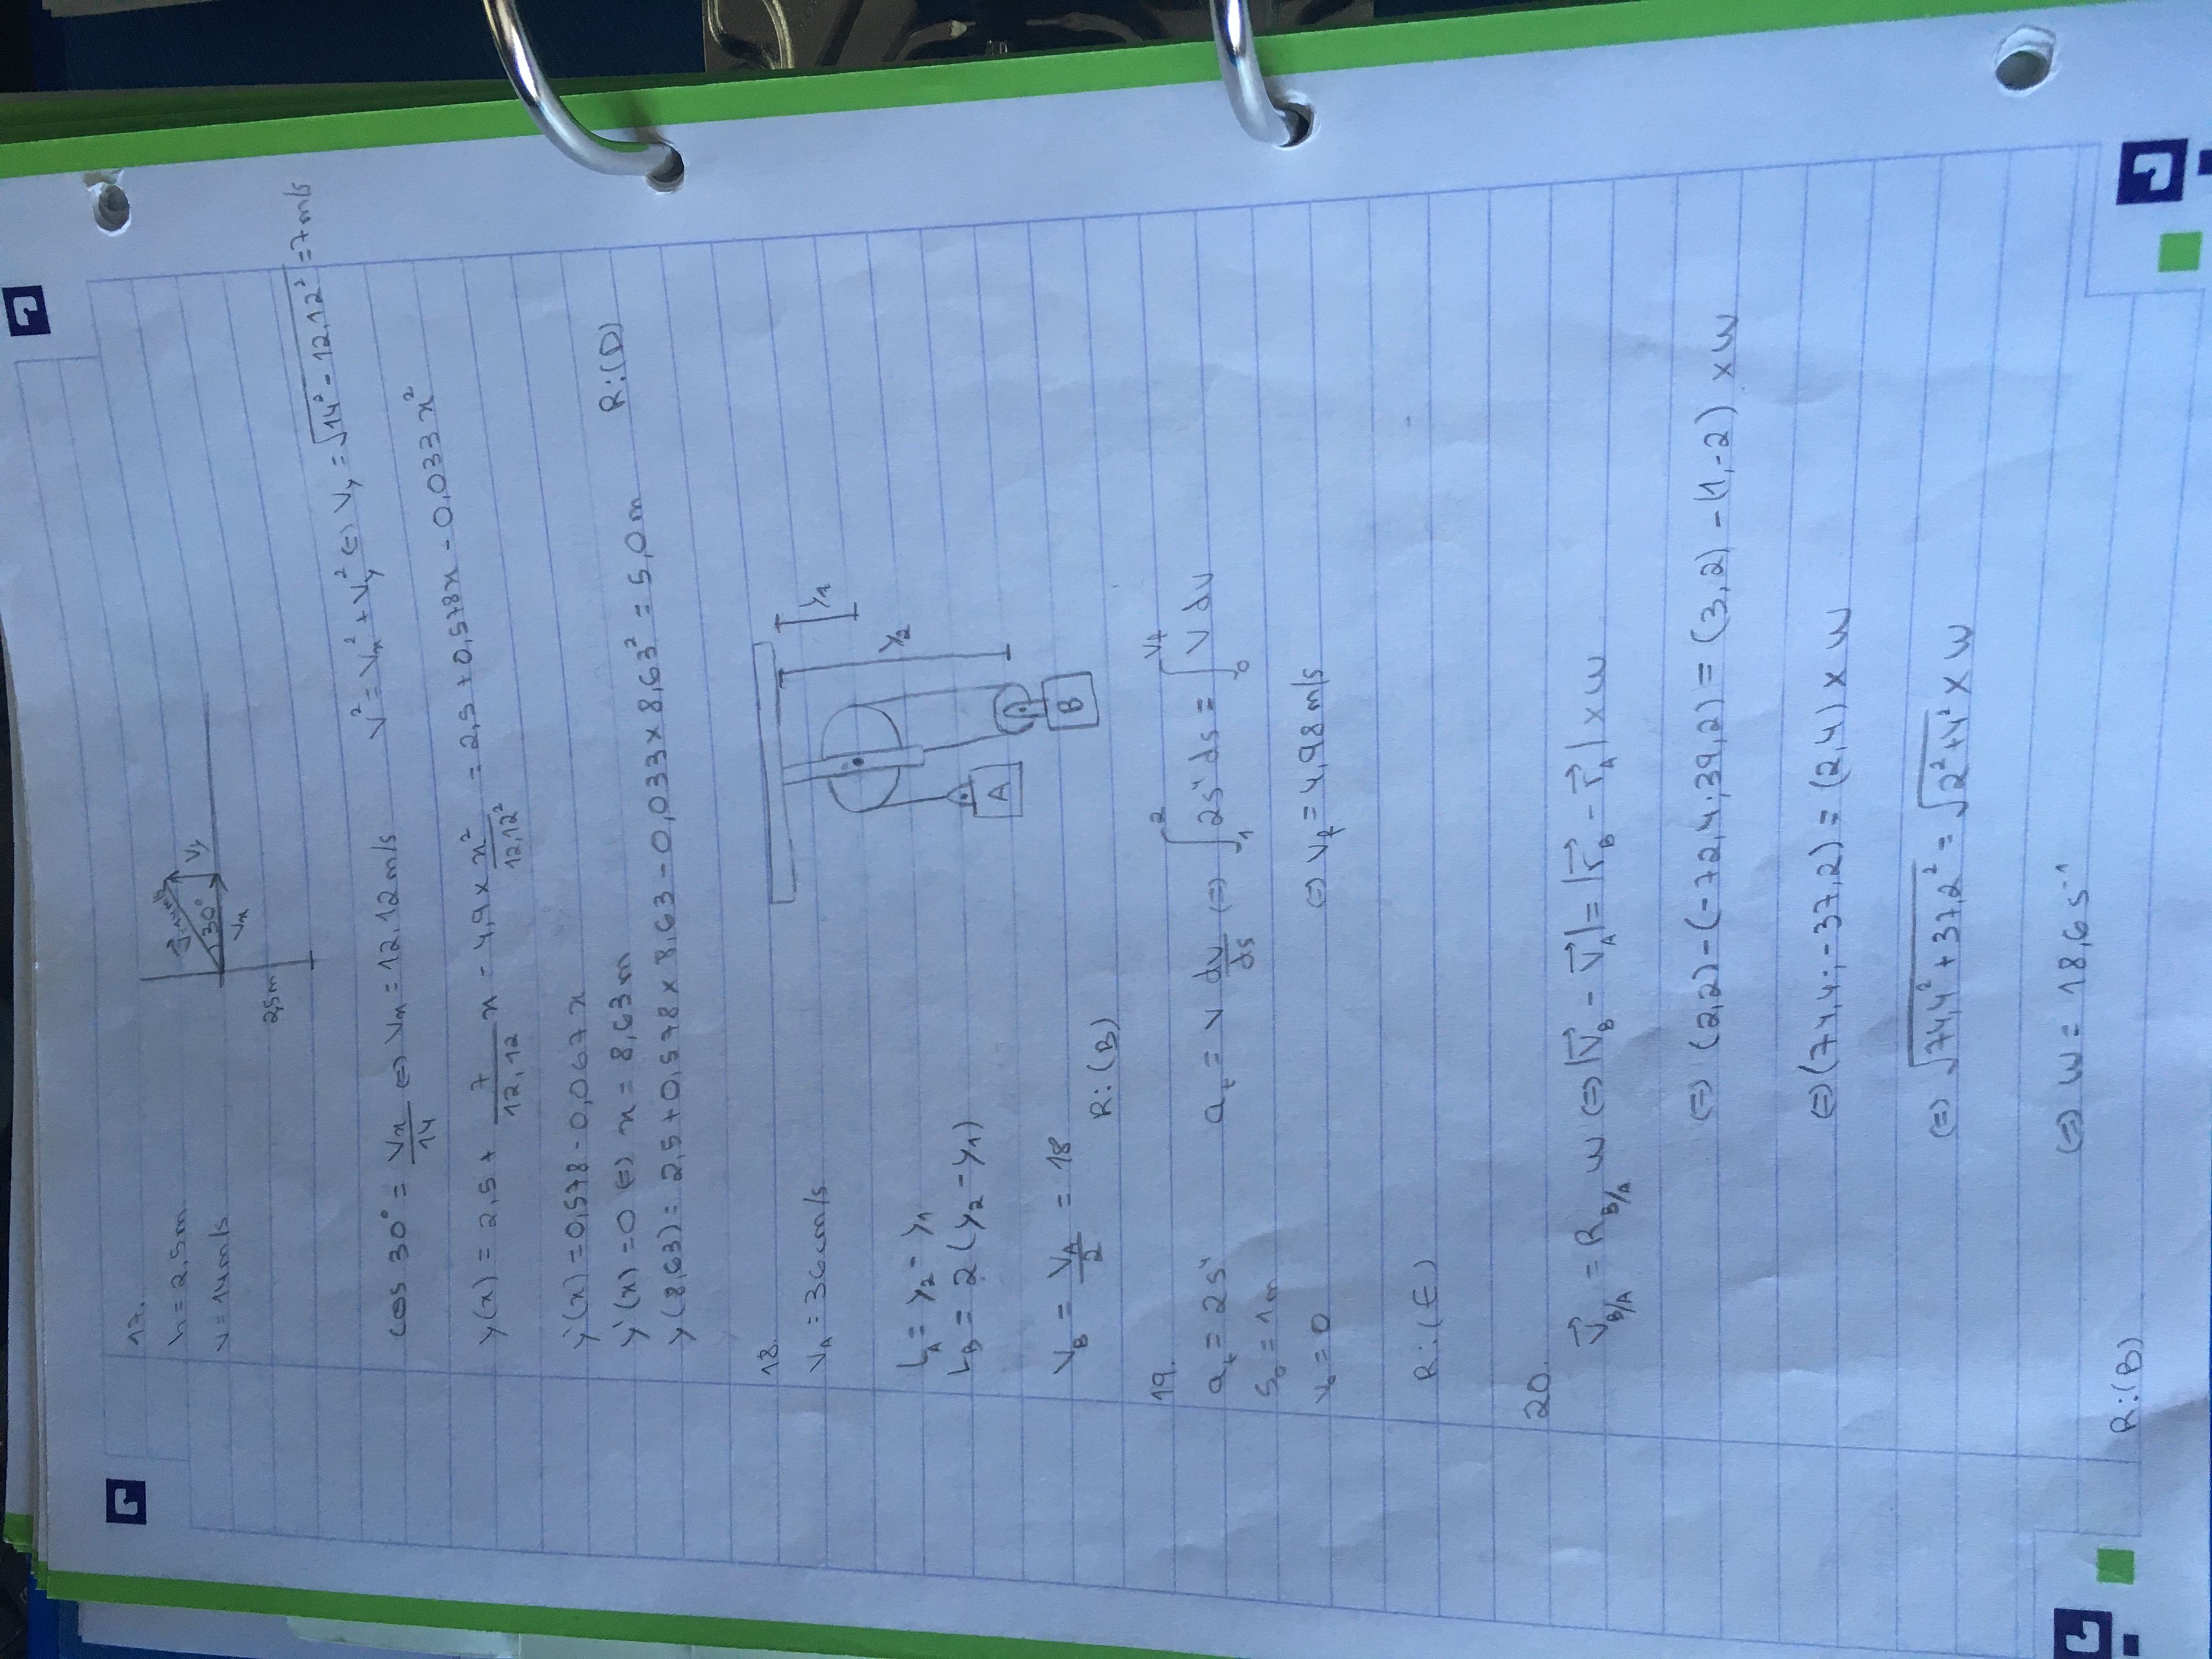 17.
h = 2,5m
v = 14m/s
v⃗=14m/s
30°
Vy
Vx
2,5m
cos 30° = Vx/14 ⇔ Vx = 12,12m/s
V² = Vx² + Vy² ⇔ Vy = √(14² - 12,12²) = 7m/s
y(x) = 2,5 + 7/12,12 x - 4,9 × x²/12,12² = 2,5 + 0,578x - 0,033x²
y'(x) = 0,578 - 0,067x
y'(x) = 0 ⇔ x = 8,63m
y(8,63) = 2,5 + 0,578 × 8,63 - 0,033 × 8,63² = 5,0m
R:(D)
18.
VA = 36cm/s
y1
y2
A
B
LA = y2 - y1
LB = 2(y2 - y1)
VB = VA/2 = 18
R:(B)
19.
at = 2s⁴
at = v dv/ds ⇔ ∫₁² 2s⁴ ds = ∫₀^Vf V dv
S0 = 1m
V0 = 0
⇔ Vf = 4,98m/s
R:(E)
20.
V⃗B/A = RB/A w ⇔ |V⃗B - V⃗A| = |r⃗B - r⃗A| × w
⇔ (2,2) - (-72,4;39,2) = (3,2) - (1,-2) × w
⇔ (74,4;-37,2) = (2,4) × w
⇔ √(74,4² + 37,2²) = √(2² + 4²) × w
⇔ w = 18,6 s⁻¹
R:(B)